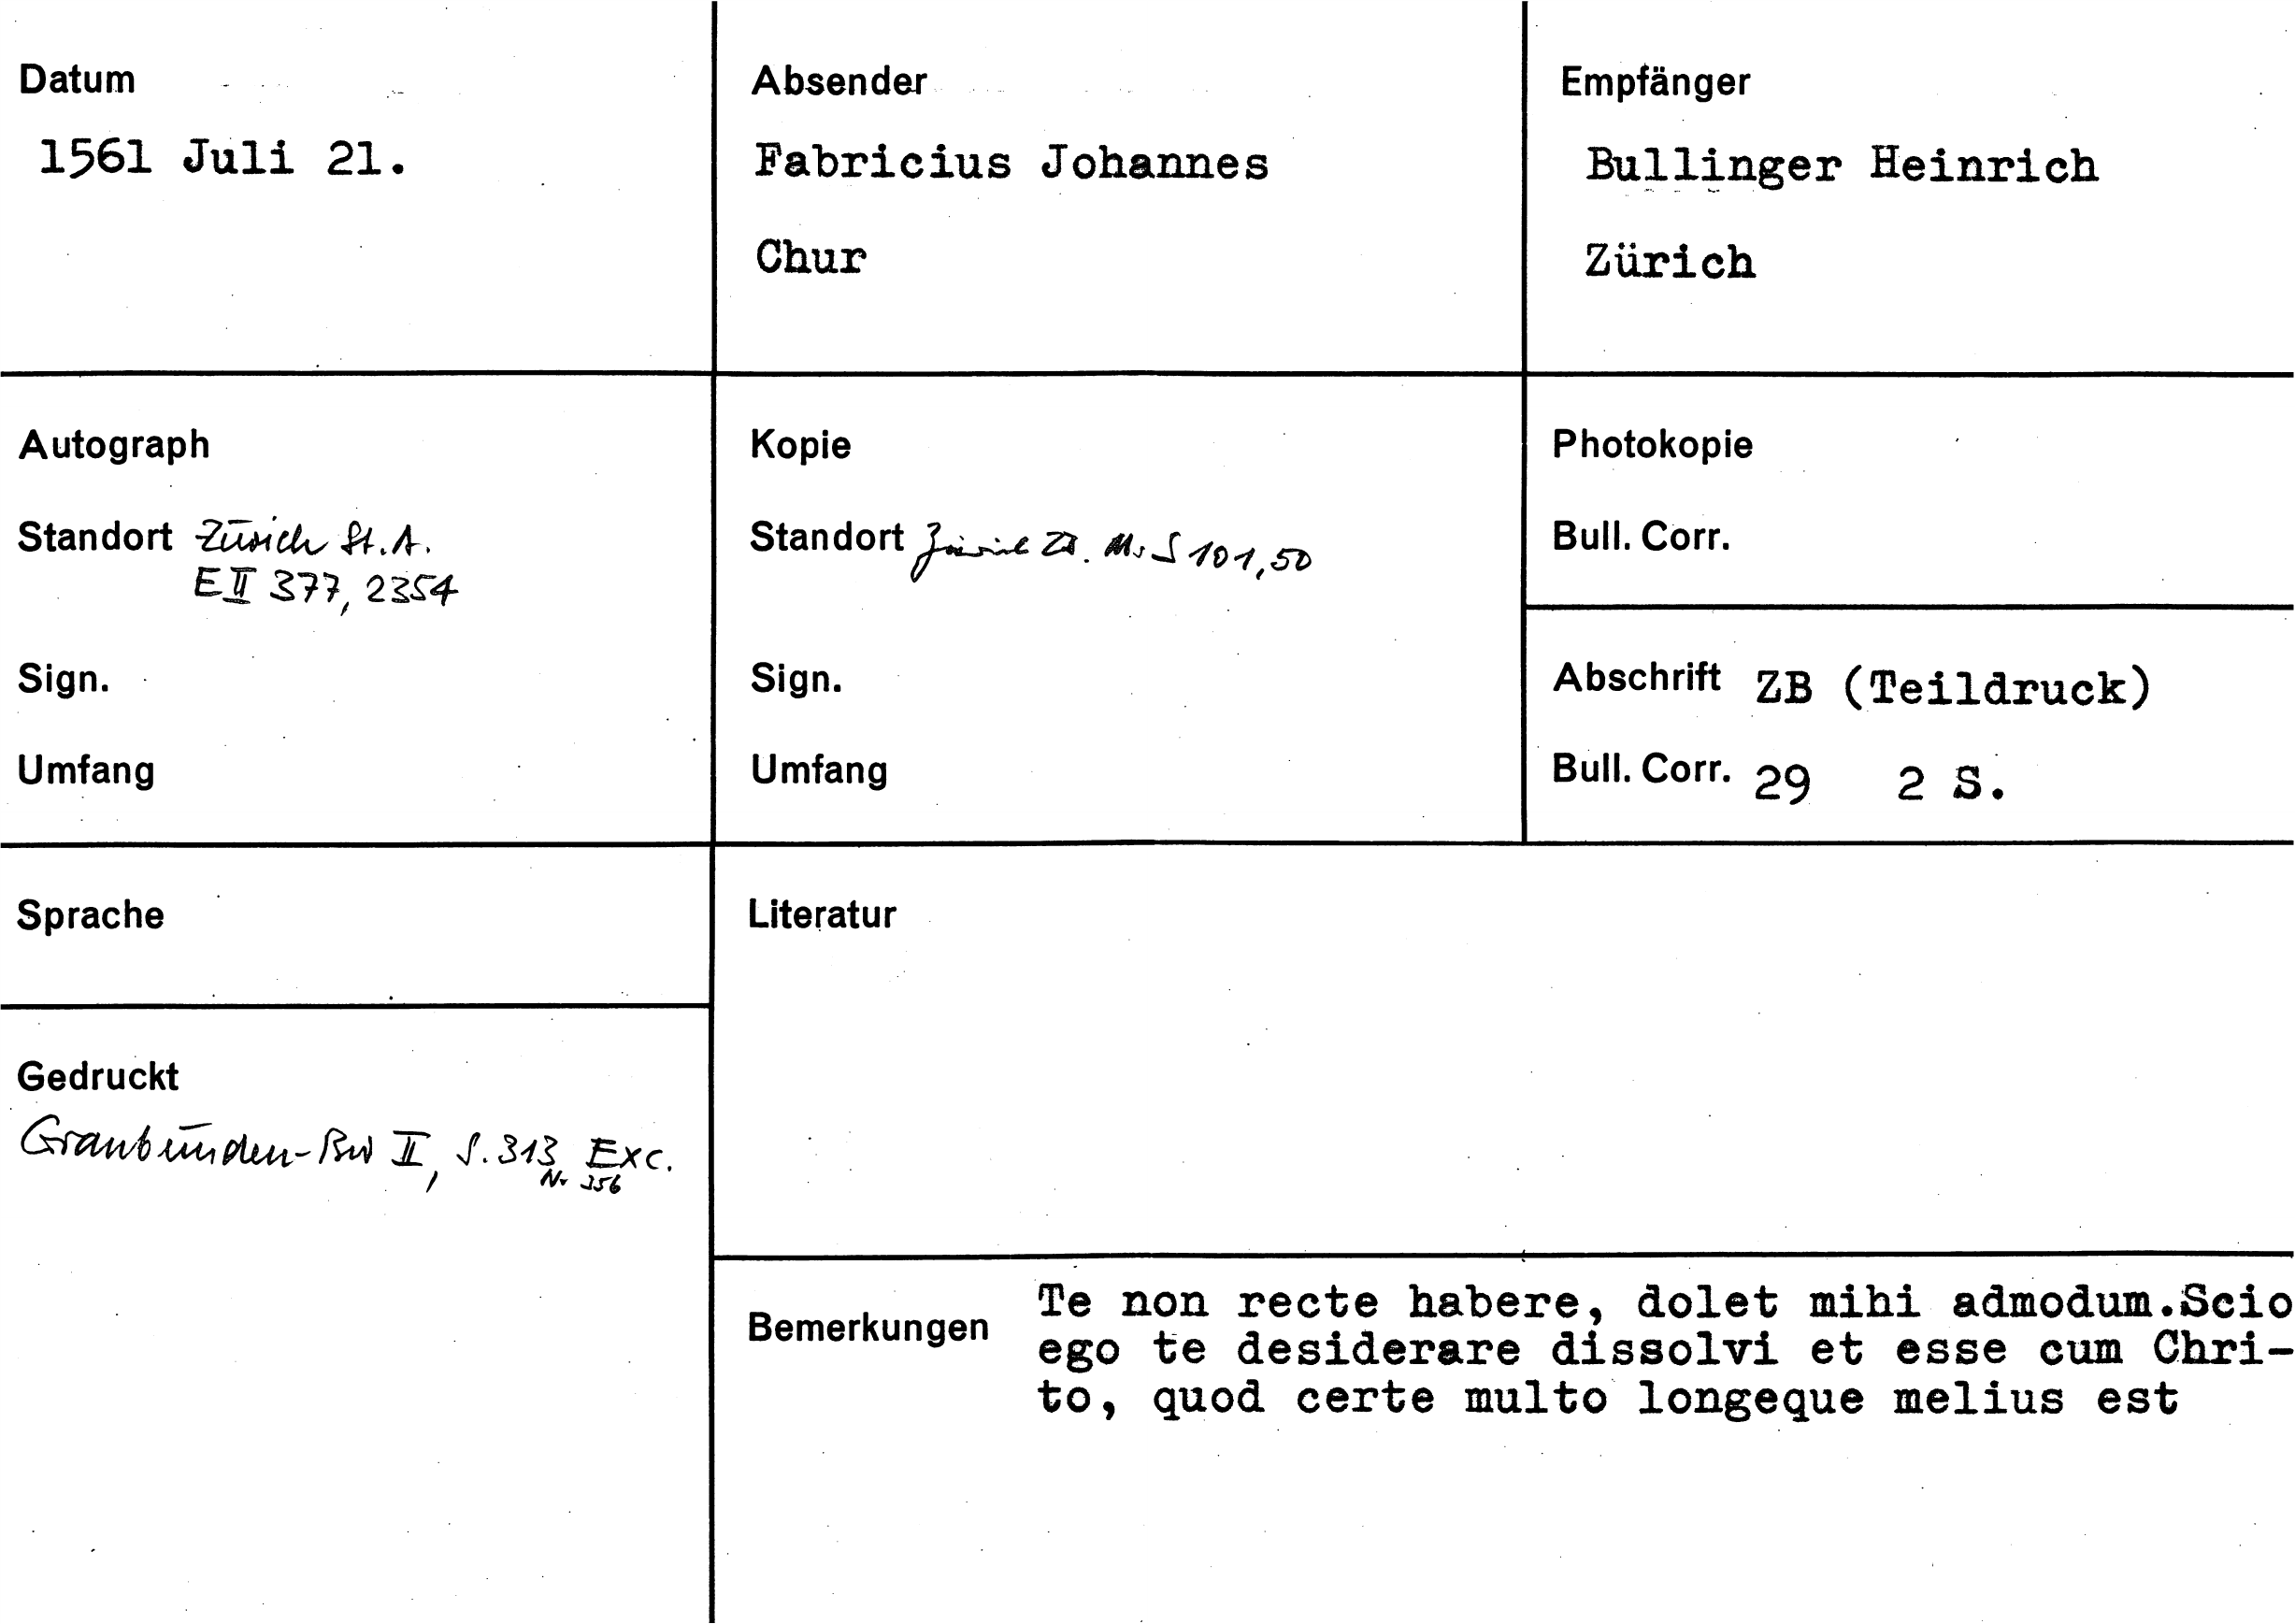 Datum
1561 Juli 21.
Absender
Fabricius Johannes
Chur
Empfänger
Bullinger Heinrich
Zürich
Autograph
Standort Zürich St.A.
E II 377, 2354
Sign.
Umfang
Kopie
Standort Zürich ZB. Ms S 101,50
Sign.
Umfang
Photokopie
Bull. Corr.
Abschrift ZB (Teildruck)
Bull. Corr. 29 2 S.
Sprache
Gedruckt
Graubünden-Bw II, S. 313 Exc.
Nr 356
Literatur
Bemerkungen
Te non recte habere, dolet mihi admodum.Scio
ego te desiderare dissolvi et esse cum Chri-
to, quod certe multo longeque melius est